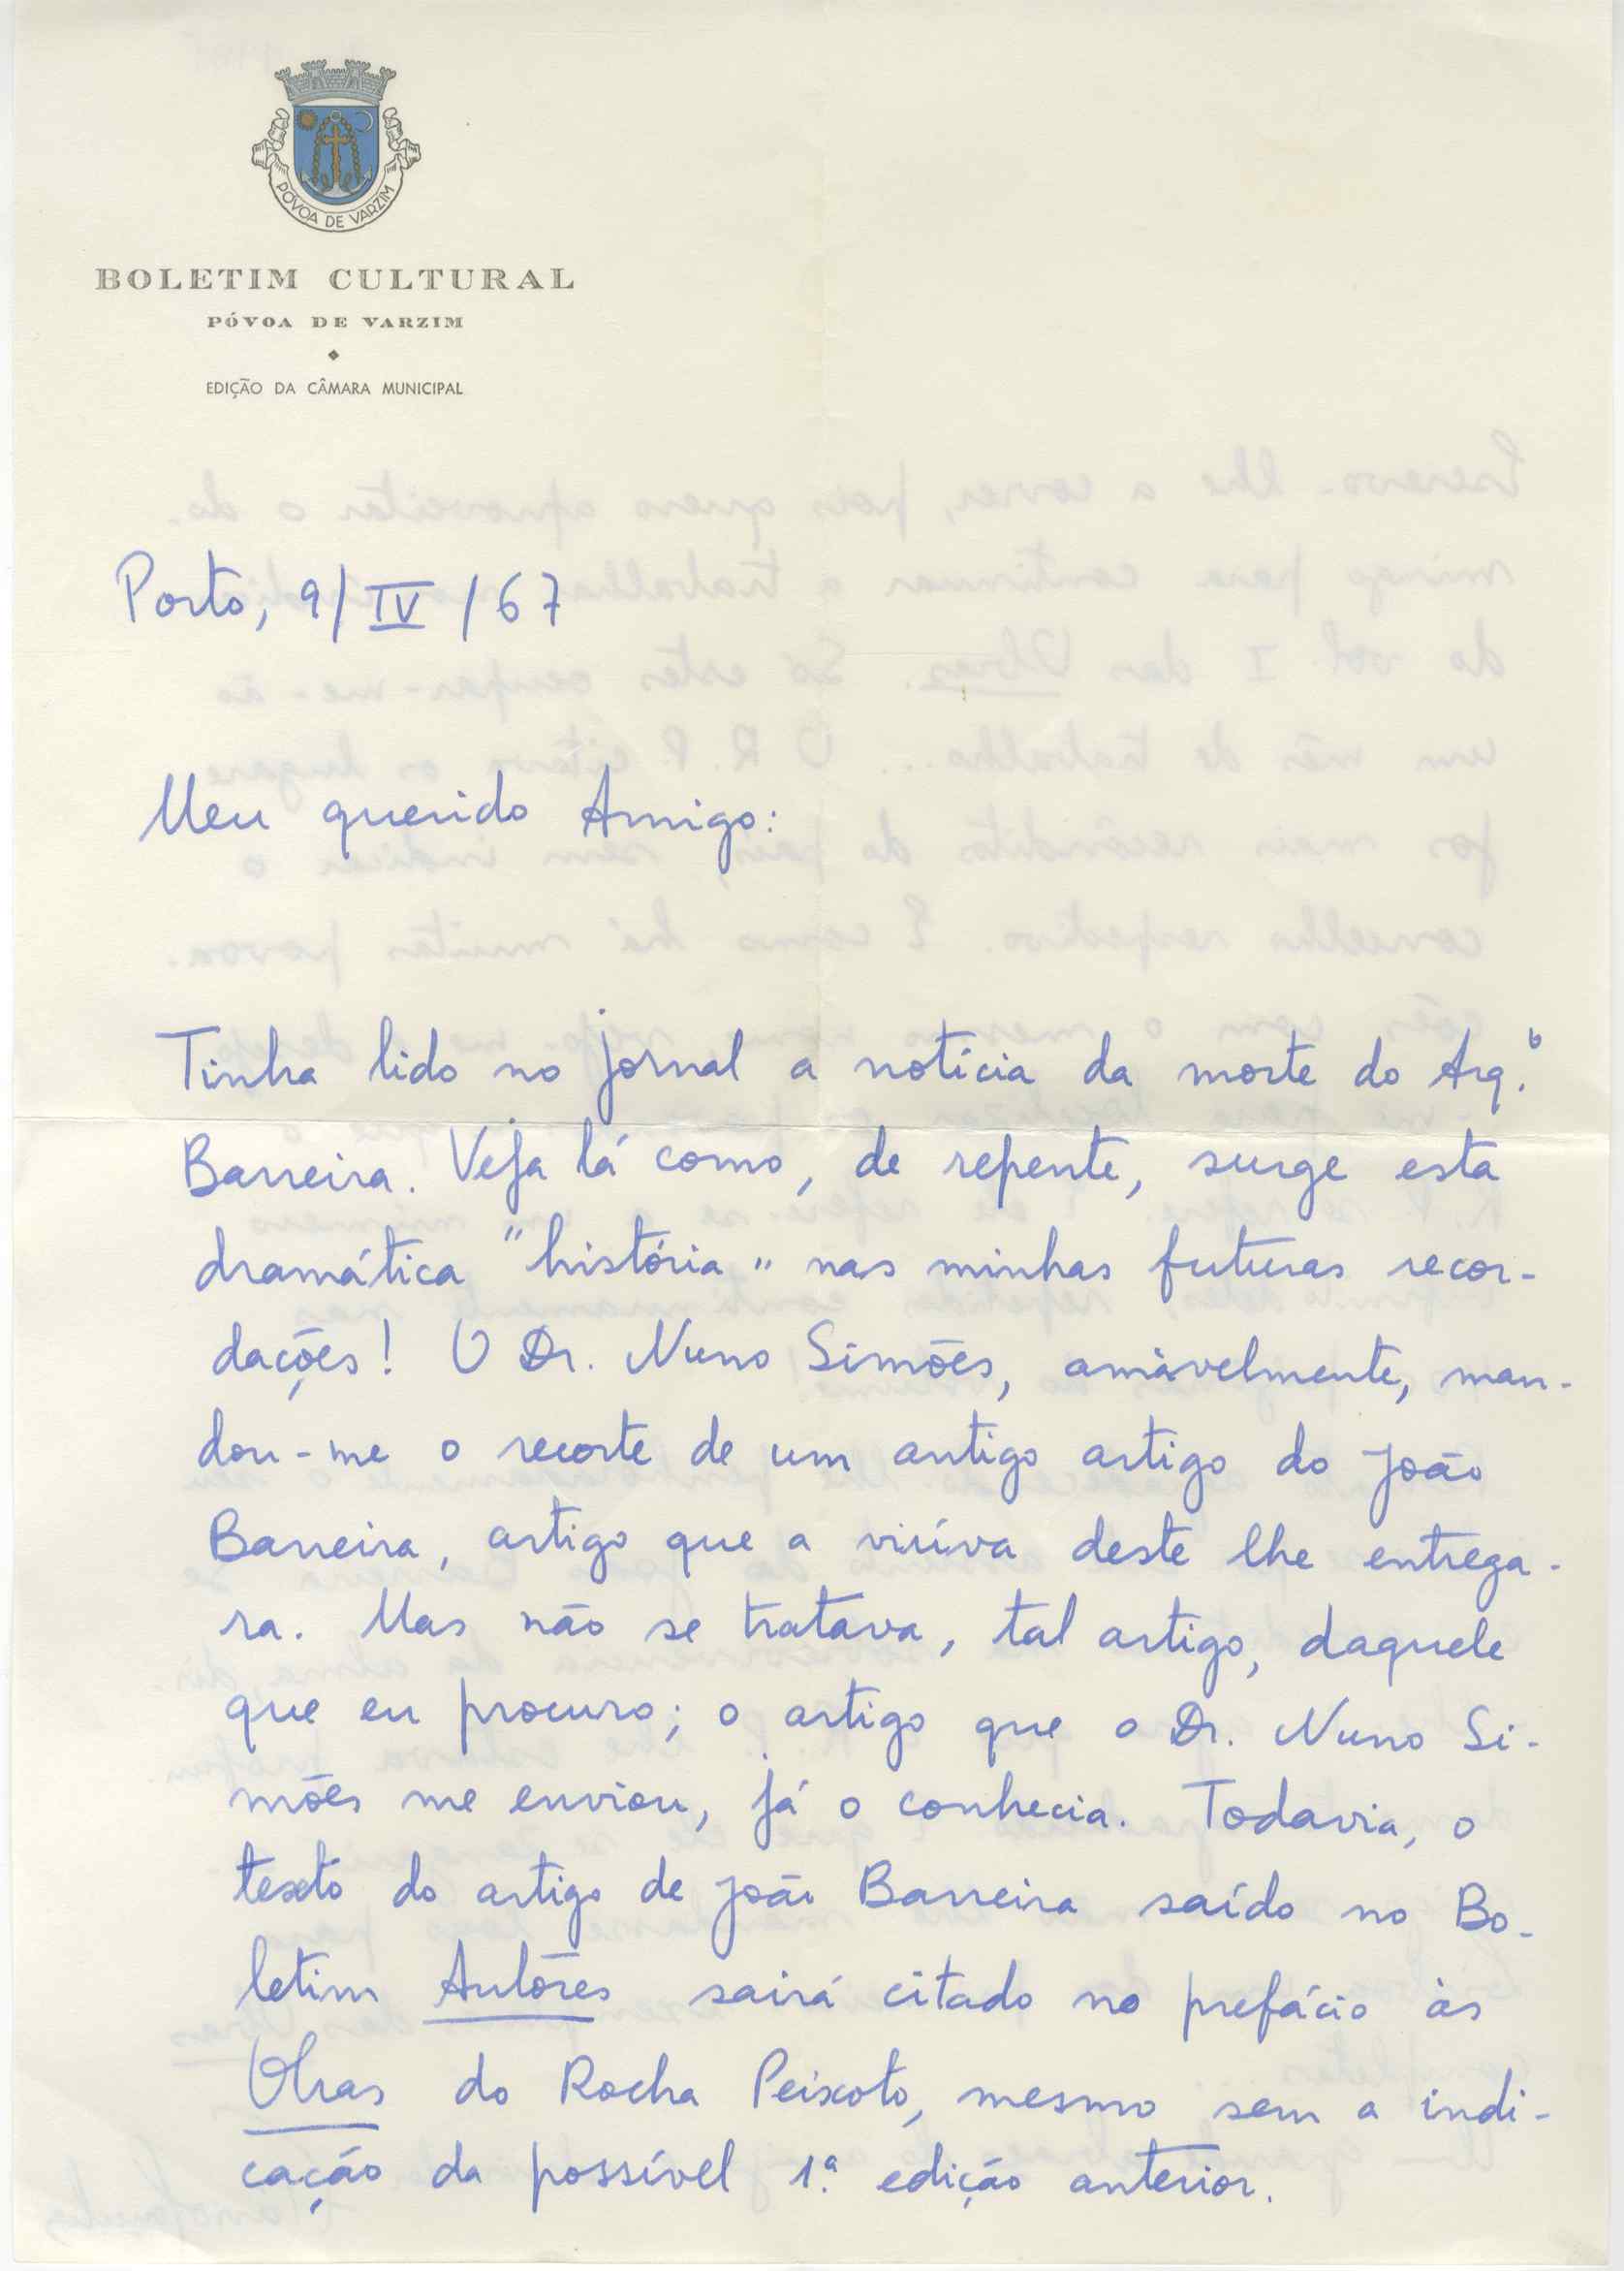 PÓVOA DE VARZIM
BOLETIM CULTURAL
PÓVOA DE VARZIM
EDIÇÃO DA CÂMARA MUNICIPAL
Porto, 9/IV/67
Meu querido Amigo:
Tinha lido no jornal a notícia da morte do Arq.º
Barreira. Veja lá como, de repente, surge esta
dramática "história" nas minhas futuras recor-
dações! O Dr. Nuno Simões, amàvelmente, man-
dou-me o recorte de um antigo artigo do João
Barreira, artigo que a viúva deste lhe entrega-
ra. Mas não se tratava, tal artigo, daquele
que eu procuro; o artigo que o Dr. Nuno Si-
mões me enviou, já o conhecia. Todavia, o
texto do artigo de João Barreira saído no Bo-
letim Autores sairá citado no prefácio às
Obras do Rocha Peixoto, mesmo sem a indi-
cação da possível 1.ª edição anterior.